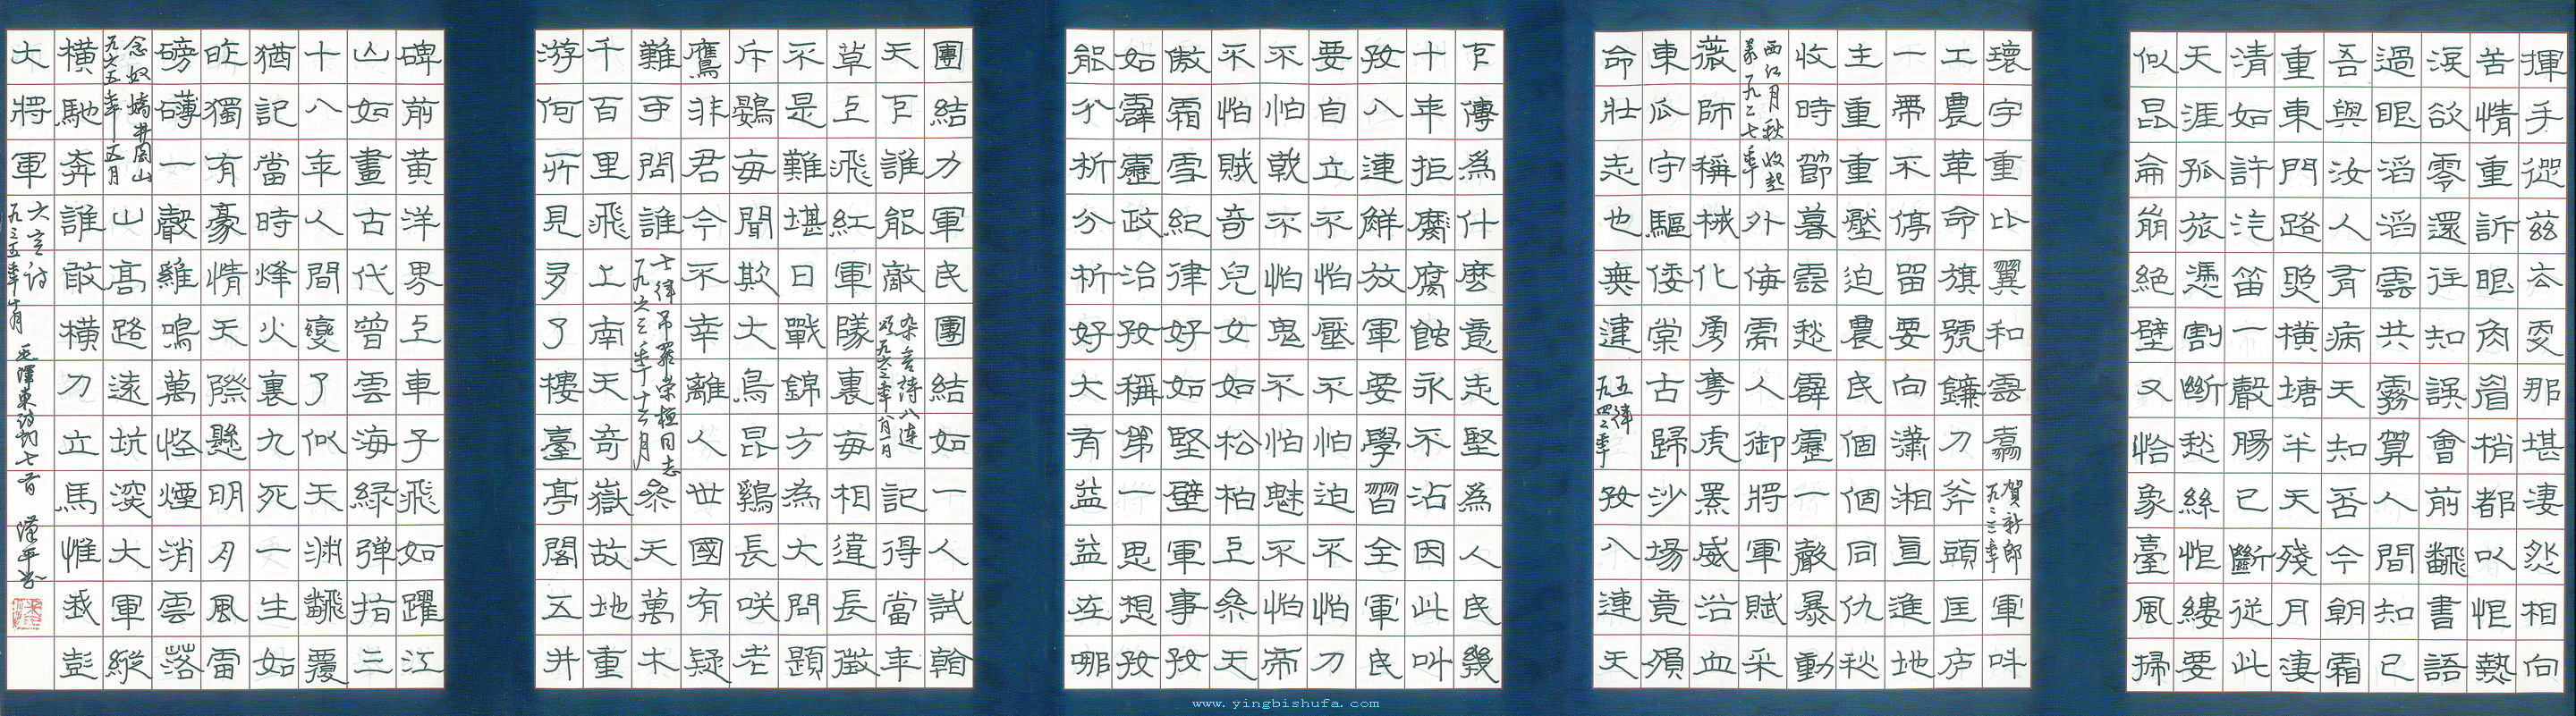 揮手從茲去更那堪淒然相向
苦情重訴眼角眉梢都似恨熱
淚欲零還往知誤會前翻書語
過眼滔滔雲共霧算人間知己
吾與汝人有病天知否今朝霜
重東門路照橫塘半天殘月淒
清如許汽笛一聲腸已斷從此
天涯孤旅憑割斷愁絲恨縷要
似昆侖崩絕壁又恰象臺風掃
環宇重比翼和雲翥
賀新郎
一九二三年
軍叫
工農革命旗號鐮刀斧頭匡庐
一帶不停留要向瀟湘直進地
主重重壓迫農民個個同仇秋
收時節暮雲愁霹靂一聲暴動
西江月秋收起
義一九二七年
外侮需人御將軍賦采
薇師稱械化勇奪虎羆威浴血
東瓜守驅倭棠古歸沙場竟殞
命壯志也無違
五律
一九四二年
我八連天
下傳為什麼意志堅為人民幾
十年拒腐腐蝕永不沾因此叫
我八連解放軍要學習全軍民
要自立不怕壓不怕迫不怕刀
不怕戟不怕鬼不怕魅不怕帝
不怕賊奇兒女如松柏上參天
傲霜雪紀律好如堅壁軍事我
如霹靂政治我稱第一思想我
能分析分析好大有益益在哪
團結力軍民團結如一人試翰
天下誰能敵
杂言詩八連
頌一九六三年八月一日
記得當年
草上飛紅軍隊裏每相違長徵
不是難堪日戰錦方為大問題
斥鷃每聞欺大鳥昆鷄長咲老
鷹非君今不幸離人世國有疑
難可問誰
七律吊羅榮桓同志
一九六三年十二月
參天萬木
千百里飛上南天奇嶽故地重
游何所見多了樓臺亭閣五井
碑前黃洋界上車子飛如躍江
山如畫古代曾雲海綠弹指三
十八年人間變了似天渊翻覆
猶記當時烽火裏九死一生如
昨獨有豪情天際懸明月風雷
磅礴一聲雞鳴萬怪煙消雲落
念奴嬌井岡山
一九六五年五月
山高路遠坑深大軍縱
橫馳奔誰敢橫刀立馬惟我彭
大將軍
六言詩
一九三五年十月
毛澤東詩詞七首 漢平書
www.yingbishufa.com